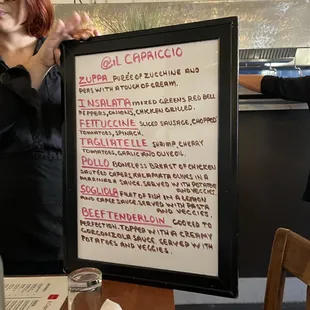 @IL CAPRICCIO
ZUPPA PUREE OF ZUCCHINE AND
PEAS WITH A TOUCH OF CREAM.
INSALATA MIXED GREENS RED BELL
PEPPERS, ONIONS, CHICKEN GRILLED.
FETTUCCINE SLICED SAUSAGE, CHOPPED
TOMATOES, SPINACH.
TAGLIATELLE SHRIMP, CHERRY
TOMATOES, GARLIC AND OLIVE OIL.
POLLO BONELESS BREAST OF CHICKEN
SAUTEED CAPERS, KALAMATA OLIVES IN A
MARINARA SAUCE. SERVED WITH POTATOES
AND VEGGIES
SOGLIOLA FILET OF FISH IN A LEMON
AND CAPER SAUCE. SERVED WITH PASTA
AND VEGGIES.
BEEF TENDERLOIN COOKED TO
PERFECTION. TOPPED WITH A CREAMY
GORGONZOLA SAUCE SERVED WITH
POTATOES AND VEGGIES.